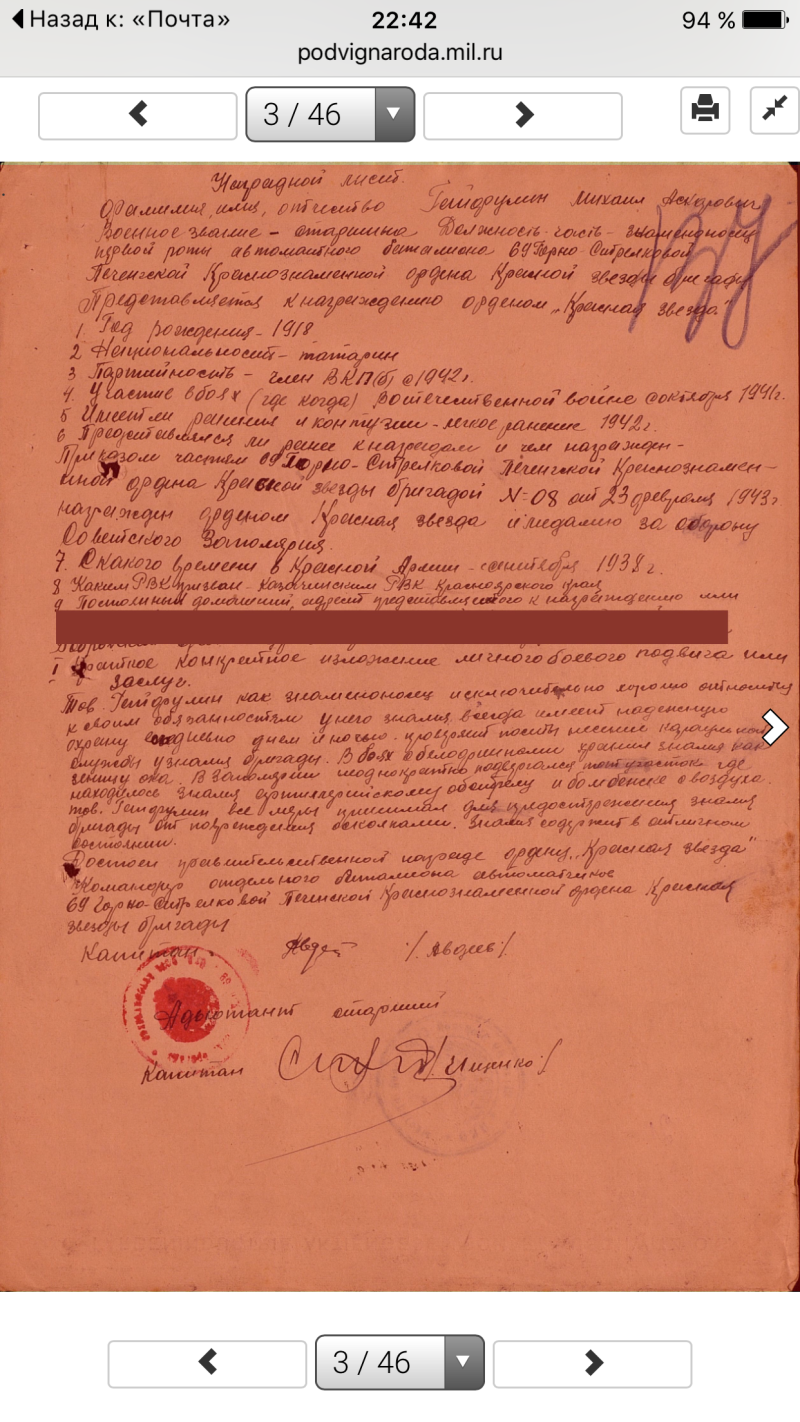 Назад к: «Почта»
22:42
94 %
podvignaroda.mil.ru
3 / 46
Наградной лист.
Фамилия, имя, отчество Гейдрулин Михаил Аскарович
Военное звание – старшина Должность часть – знаменосец
первой роты автоматного баталиона 69 Горно-Стрелковой
Печенгской Краснознаменной ордена Красной звезды бригады
Представляется к награждению орденом „Красная звезда"
1. Год рождения – 1918
2 Национальность – татарин
3 Партийность – член ВКП(б) с 1942г.
4. Участие в боях (где когда) в отечественной войне с октября 1941г.
5 Имеет ли ранения и контузии – легкое ранение 1942г.
6 Представлялся ли ранее к наградам и чем награжден –
Приказом частям 69 Горно-Стрелковой Печенгской Краснознамен–
ной ордена Красной звезды бригадой № 08 от 23 февраля 1943г
награжден орденом Красная звезда и медалию за оборону
Советского Заполярия.
7. С какого времени в Красной Армии – сентября 1938 г.
8 Каким РВК призван – Казачинским РВК Красноярского края
9 Постоянный домашний адрес представляемого к награждению или
I Краткое конкретное изложение личного боевого подвига или
заслуг.
Тов. Гейдрулин как знаменоносец исключительно хорошо относится
к своим обязанностям у него знамя всегда имеет надежную
охрану ежедневно днем и ночью проверяет посты несение караульной
службы у знамя бригады. В боях с белофиннами хранил знамя как
зеницу ока. В Заполярии неоднократно подвергался участок где
находилось знамя артиллерийскому обстрелу и бомбежке с воздуха.
тов. Гейдрулин все меры принимал для предостережения знамя
бригады от повреждения осколками. Знамя содержит в отличном
состоянии.
Достоен правительственной награде ордену „Красная звезда"
Командир отдельного баталиона автоматчиков
69 Горно-Стрелковой Печенской Краснознаменной ордена Красная
звезды бригады
Капитан Авдеев /Авдеев/.
Адьютант старший
Капитан /Ищенко/
3 / 46